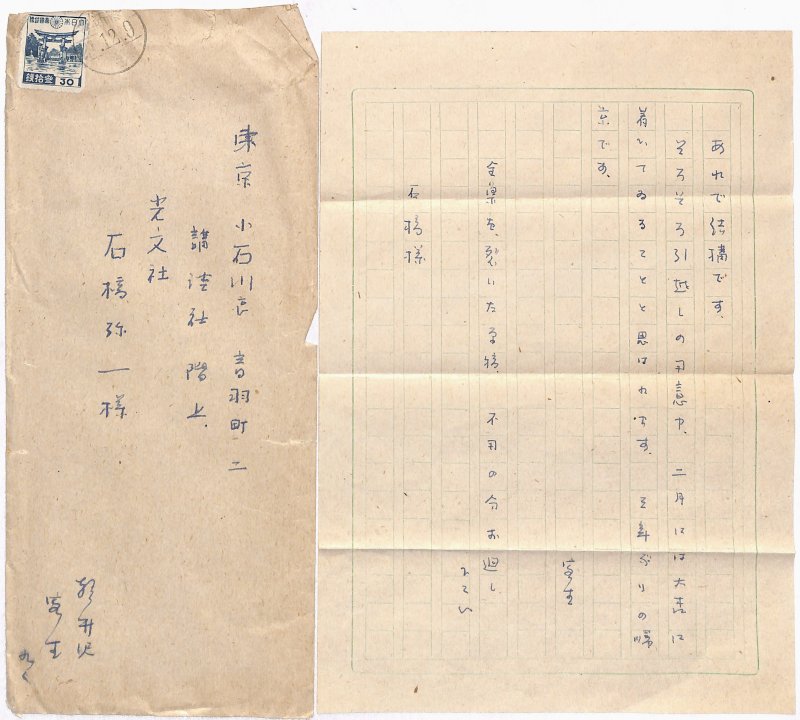 大日本帝國郵便
参拾銭
30
.12.0
東京 小石川区 音羽町二
講談社 階上
光文社
石橋弥一様
軽井沢
室生
あれで結構です。
そろそろ引越しの用意中、二月には大森に
着いてゐることと思はれます。年ぶりの帰
京です。
室生
全集を、いた原稿、不用の分お廻し
下さい
石橋様